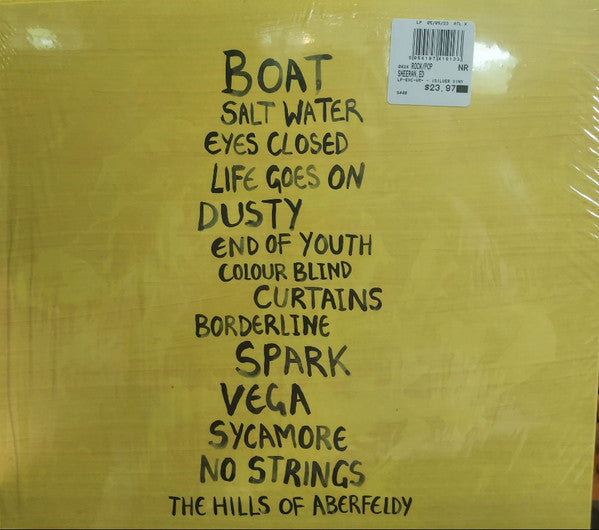 LP 05/05/23 ATL X
ROCK/POP
NR
SHEERAN, ED
$23.97
BOAT
SALT WATER
EYES CLOSED
LIFE GOES ON
DUSTY
END OF YOUTH
COLOUR BLIND
CURTAINS
BORDERLINE
SPARK
VEGA
SYCAMORE
NO STRINGS
THE HILLS OF ABERFELDY